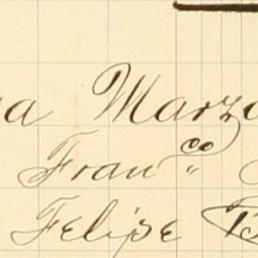 a Marzo
Fran^co
Felipe B